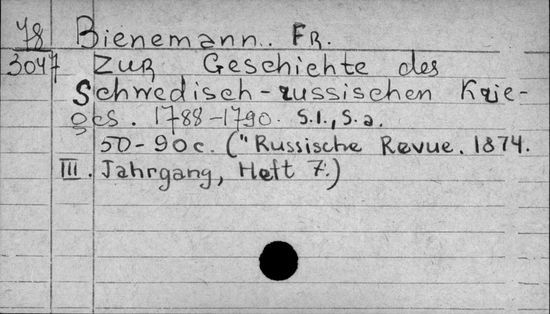 78 Bienemann. Fr.
3047 Zur Geschichte des
Schwedisch-russischen Krie-
ges. 1788-1790. S.l., S.a.
50-90c. ("Russische Revue. 1874.
III. Jahrgang, Heft 7.)